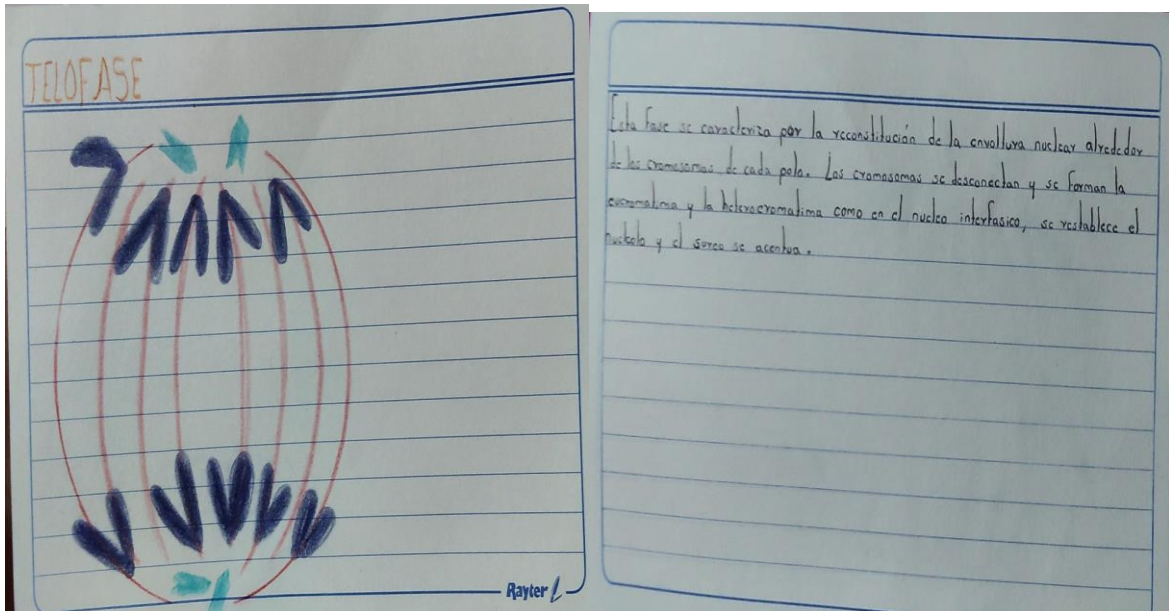 TELOFASE
Rayter
Esta Fase se caracteriza por la reconstitución de la envoltura nuclear alrededor
de los cromosomas de cada polo. Los cromosomas se desconectan y se forman la
eucromatima y la heterocromatima como en el nucleo interfasico, se restablece el
nucleolo y el surco se acentua.